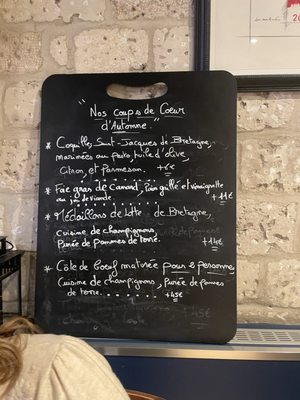 "Nos coups de Coeur
d'Automne."
* Coquilles Saint-Jacques de Bretagne,
marinées au pesto, huile d'olive
Citron, et Parmesan. +6€
* Foie gras de canard, Pain grillé et vinaigrette
au jus de viande. +11€
* Médaillons de lotte de Bretagne,
Cuisine de champignons,
Purée de pommes de terre. +14€
* Côte de boeuf maturée pour 2 personnes
Cuisine de champignons, Purée de pommes
de terre. +45€